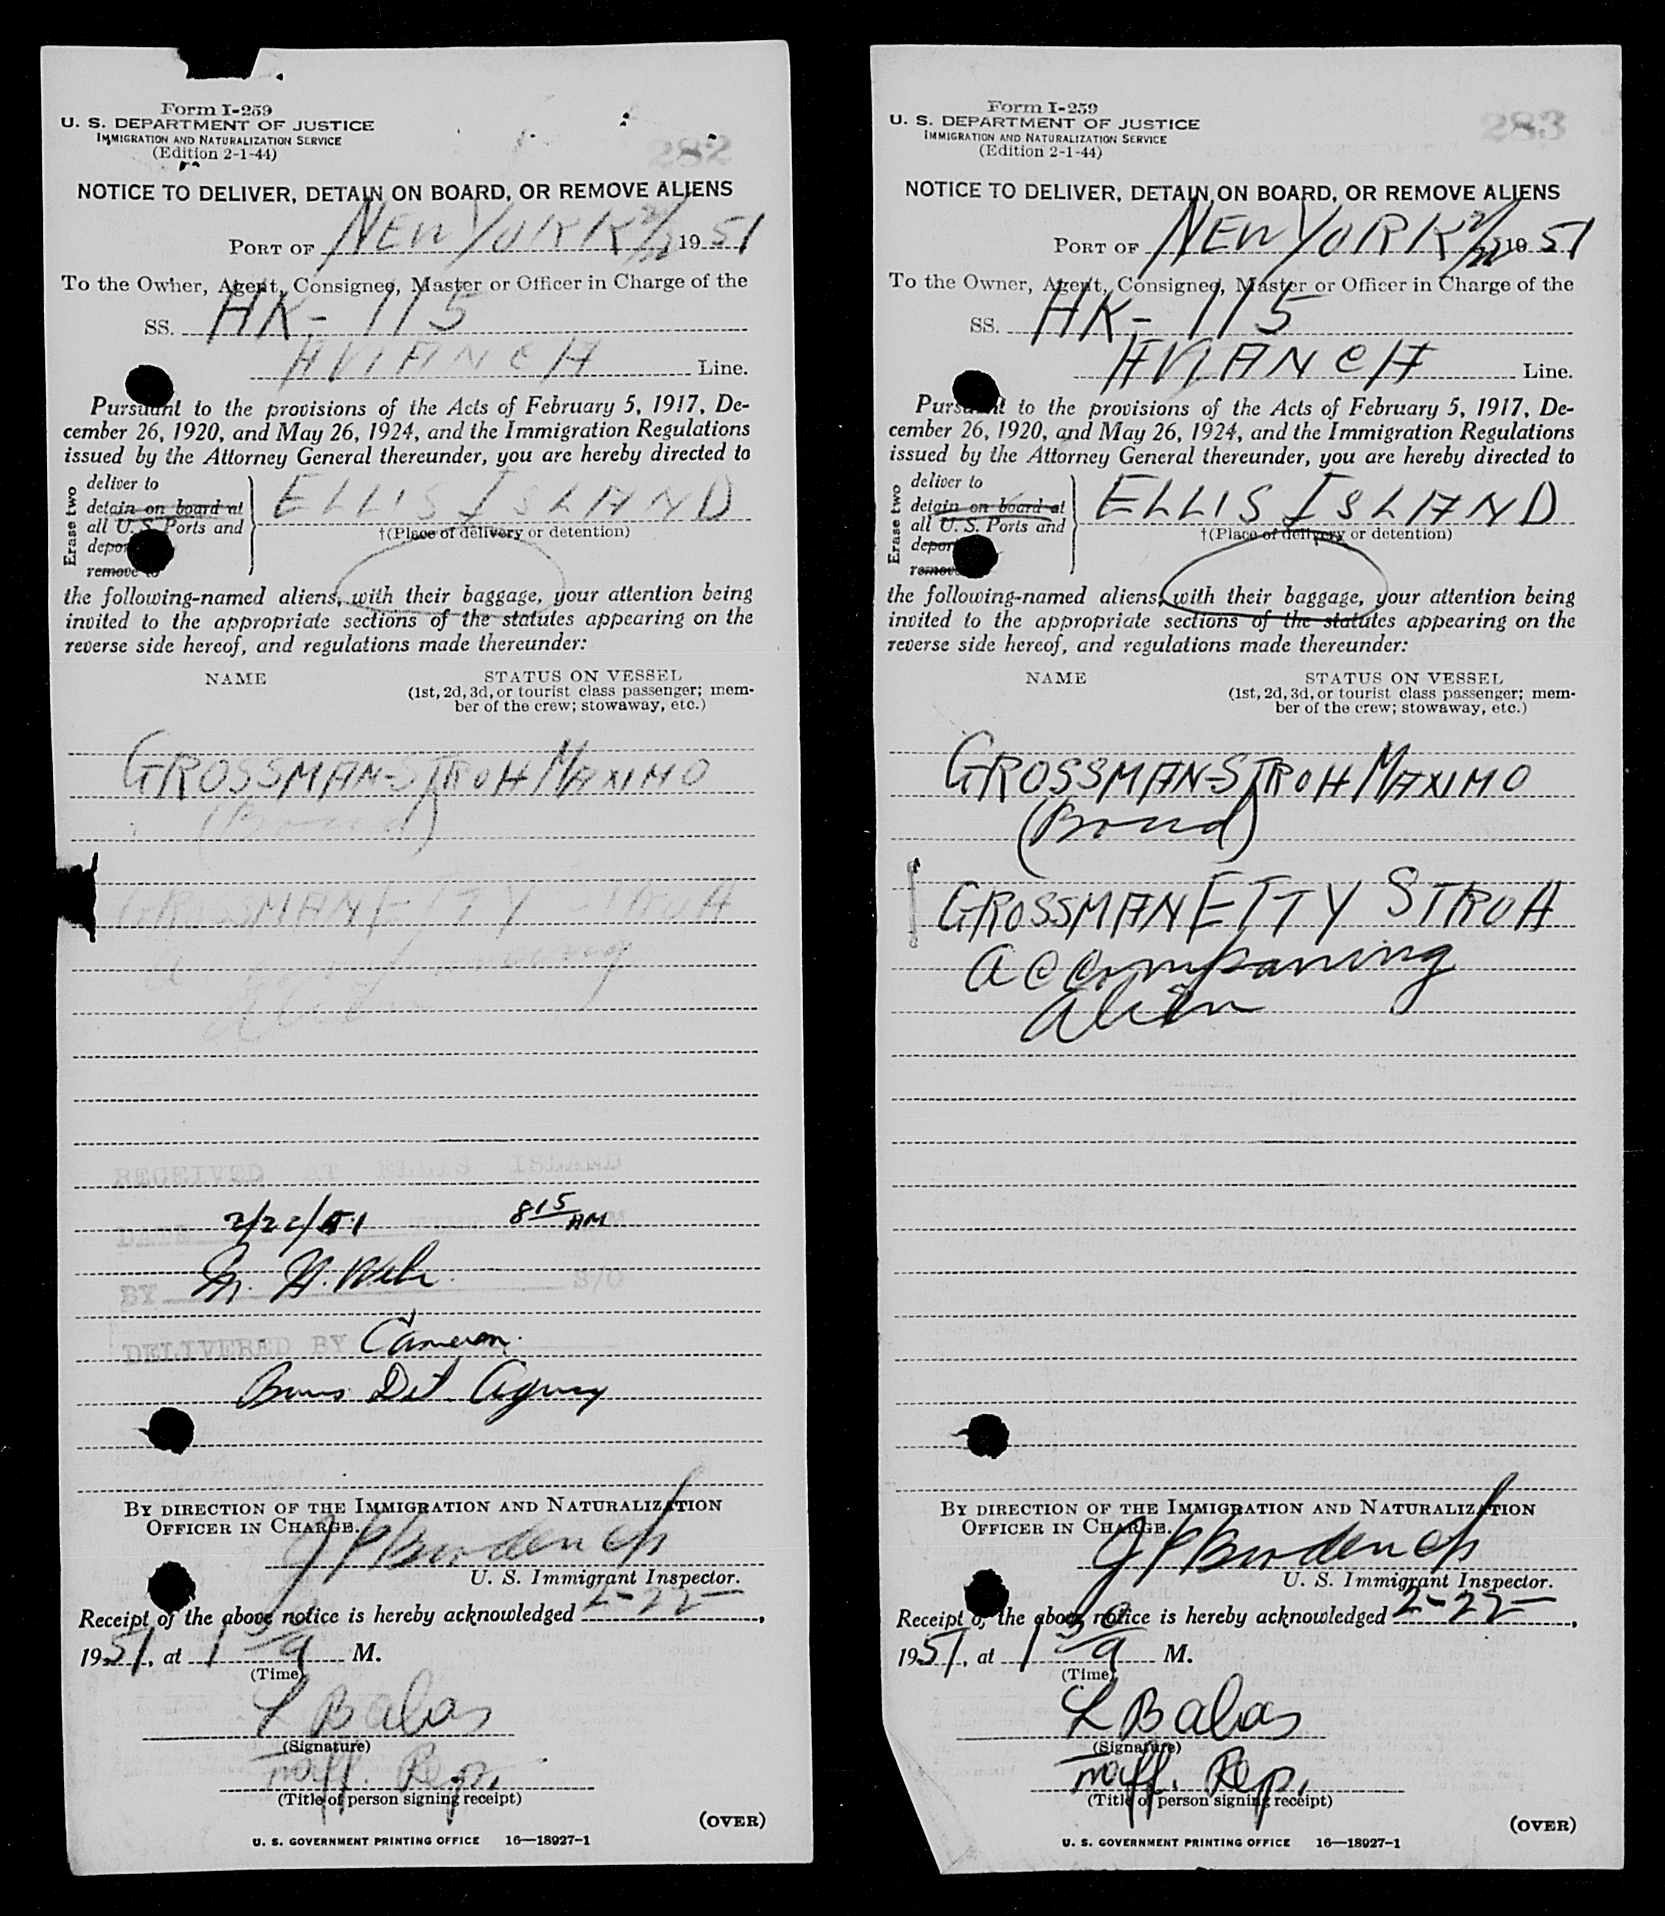 Form I-259
U. S. DEPARTMENT OF JUSTICE
IMMIGRATION AND NATURALIZATION SERVICE
(Edition 2-1-44)
282
NOTICE TO DELIVER, DETAIN ON BOARD, OR REMOVE ALIENS
PORT OF NEW YORK 2/22 1951
To the Owner, Agent, Consignee, Master or Officer in Charge of the
SS. HK-115
AVIANCA Line.
Pursuant to the provisions of the Acts of February 5, 1917, De-
cember 26, 1920, and May 26, 1924, and the Immigration Regulations
issued by the Attorney General thereunder, you are hereby directed to
Erase two
deliver to
detain on board at
all U. S. Ports and
remove to
ELLIS ISLAND
†(Place of delivery or detention)
the following-named aliens, with their baggage, your attention being
invited to the appropriate sections of the statutes appearing on the
reverse side hereof, and regulations made thereunder:
NAME STATUS ON VESSEL
(1st, 2d, 3d, or tourist class passenger; mem-
ber of the crew; stowaway, etc.)
GROSSMAN-STROH MAXIMO
(Bond)
GROSSMAN ETTY STROH
accompanying
alien
RECEIVED AT ELLIS ISLAND
DATE 2/22/51 TIME 8 15 AM
BY S/O
DELIVERED BY Cameron
Det. Agency
BY DIRECTION OF THE IMMIGRATION AND NATURALIZATION
OFFICER IN CHARGE.
U. S. Immigrant Inspector.
Receipt of the above notice is hereby acknowledged 2-22,
1951, at 1 30 a M.
(Time)
L Balas
(Signature)
Traff. Rep.
(Title of person signing receipt)
(OVER)
U. S. GOVERNMENT PRINTING OFFICE 16—18927-1
Form I-259
U. S. DEPARTMENT OF JUSTICE
IMMIGRATION AND NATURALIZATION SERVICE
(Edition 2-1-44)
283
NOTICE TO DELIVER, DETAIN ON BOARD, OR REMOVE ALIENS
PORT OF NEW YORK 2/22 1951
To the Owner, Agent, Consignee, Master or Officer in Charge of the
SS. HK-115
AVIANCA Line.
Pursuant to the provisions of the Acts of February 5, 1917, De-
cember 26, 1920, and May 26, 1924, and the Immigration Regulations
issued by the Attorney General thereunder, you are hereby directed to
Erase two
deliver to
detain on board at
all U. S. Ports and
remove
ELLIS ISLAND
†(Place of delivery or detention)
the following-named aliens, with their baggage, your attention being
invited to the appropriate sections of the statutes appearing on the
reverse side hereof, and regulations made thereunder:
NAME STATUS ON VESSEL
(1st, 2d, 3d, or tourist class passenger; mem-
ber of the crew; stowaway, etc.)
GROSSMAN-STROH MAXIMO
(Bond)
GROSSMAN ETTY STROH
accompaning
alien
BY DIRECTION OF THE IMMIGRATION AND NATURALIZATION
OFFICER IN CHARGE.
U. S. Immigrant Inspector.
Receipt of the above notice is hereby acknowledged 2-22,
1951, at 1 30 a M.
(Time)
L Balas
(Signature)
Traff. Rep.
(Title of person signing receipt)
(OVER)
U. S. GOVERNMENT PRINTING OFFICE 16—18927-1